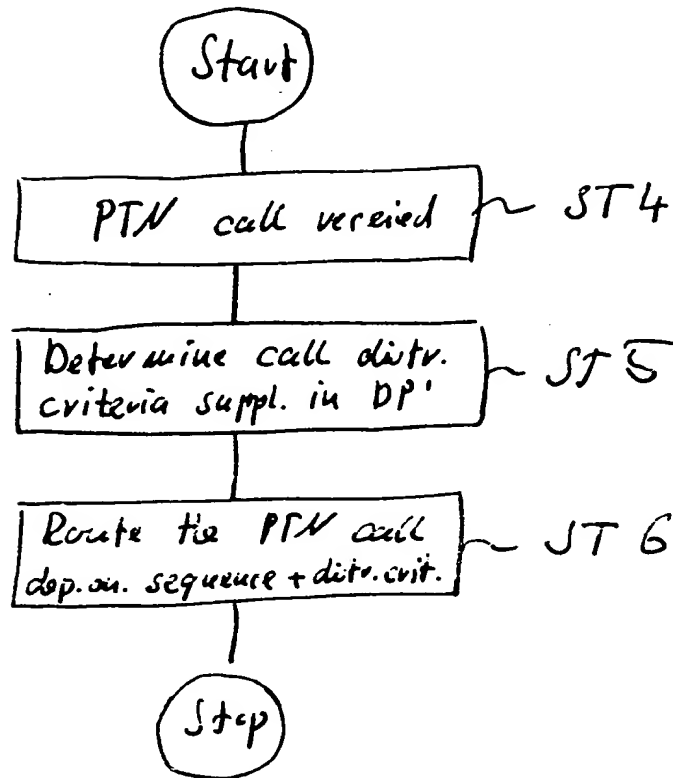 Start
PTN call received
ST4
Determine call distr.
criteria suppl. in DP'
ST5
Route the PTN call
dep. on. sequence + distr. crit.
ST6
Stop